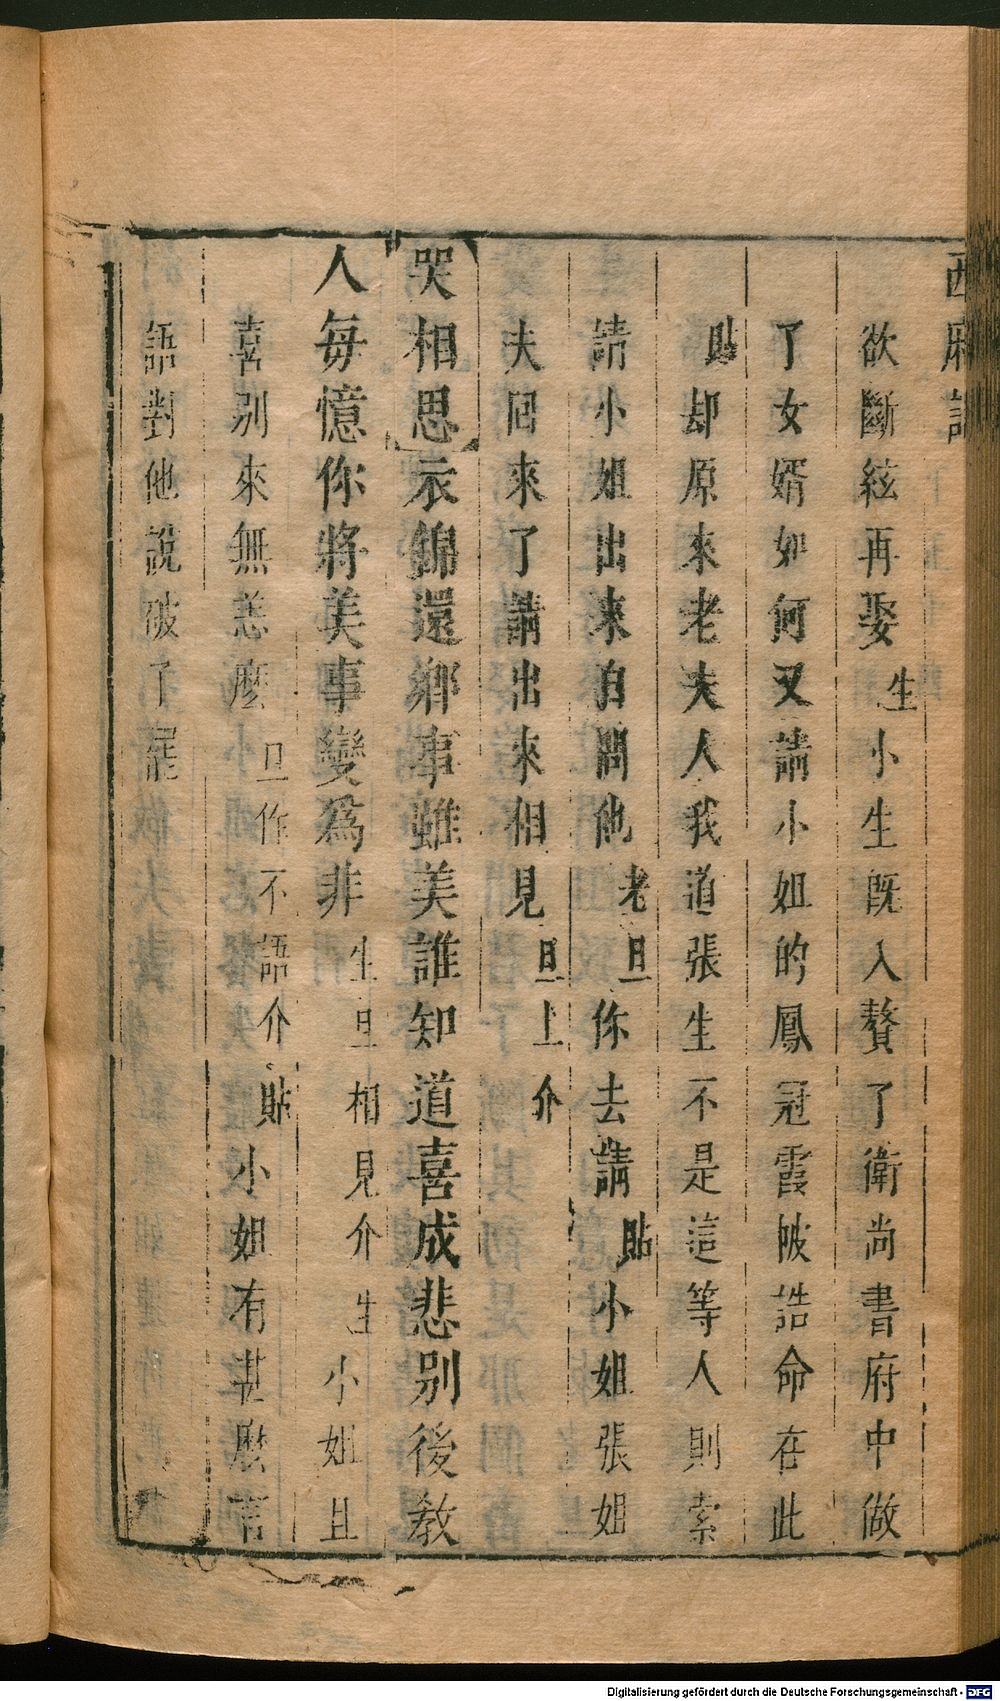 西廂記
欲斷絃再娶生小生旣入贅了衛尚書府中做
了女婿如何又請小姐的鳳冠霞帔誥命在此
貼却原來老夫人我道張生不是這等人則索
請小姐出來自問他老旦你去請貼小姐張姐
夫回來了請出來相見旦上介
哭相思衣錦還鄉事雖美誰知道喜成悲別後教
人每憶你將美事變爲非生旦相見介生小姐且
喜別來無恙麽旦作不語介貼小姐有甚麽言
語對他說破了罷
Digitalisierung gefördert durch die Deutsche Forschungsgemeinschaft - DFG